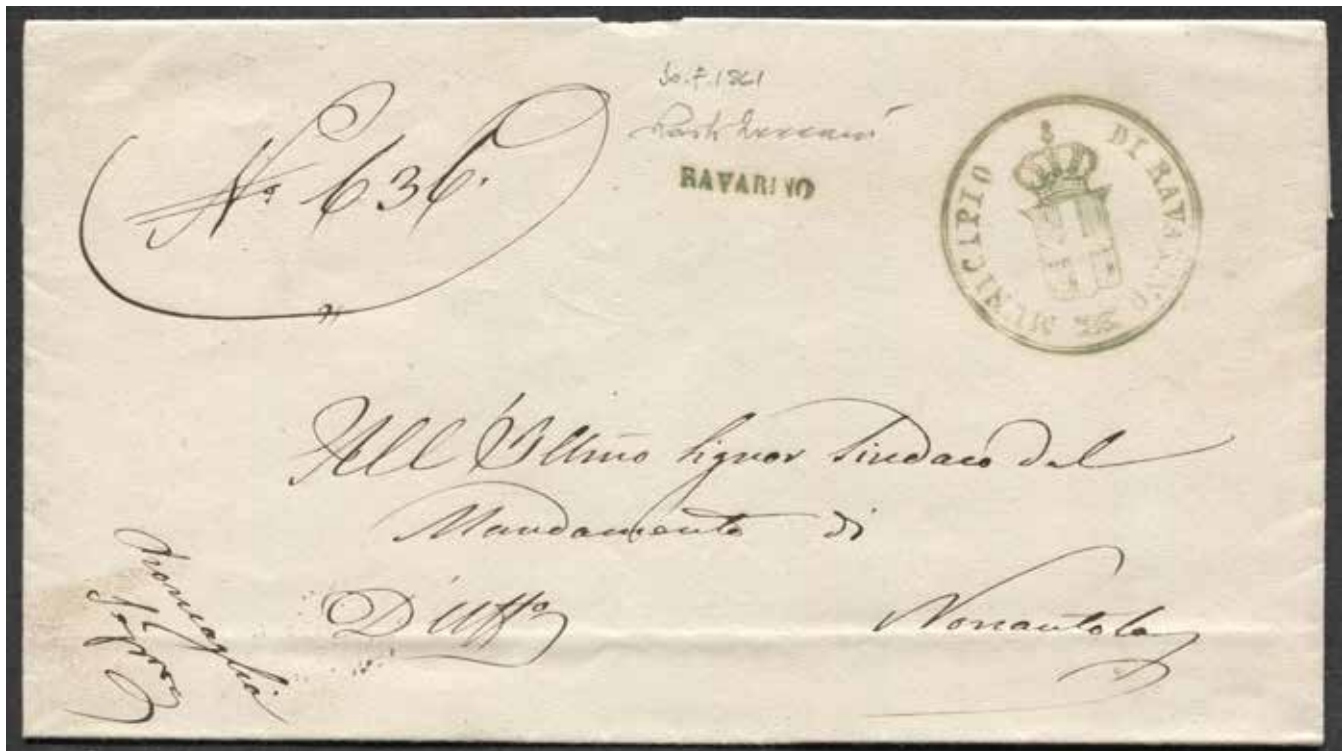 N.° 636.
30.7.1861
RAVARINO
MUNICIPIO DI RAVARINO
All Illmo Signor Sindaco del
Mandamento di
D'Uff°
Nonantola